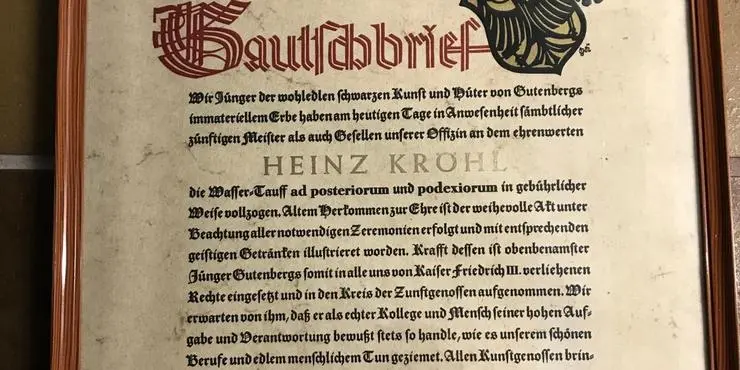 Gautschbrief
Wir Jünger der wohledlen schwarzen Kunst und Hüter von Gutenbergs
immateriellem Erbe haben am heutigen Tage in Anwesenheit sämbtlicher
zünftigen Meister als auch Gesellen unserer Offizin an dem ehrenwerten
HEINZ KRÖHL
die Wasser-Tauff ad posteriorum und podexiorum in gebührlicher
Weise vollzogen. Altem Herkommen zur Ehre ist der weihevolle Akt unter
Beachtung aller notwendigen Zeremonien erfolgt und mit entsprechenden
geistigen Getränken illustrieret worden. Krafft dessen ist obenbenamster
Jünger Gutenbergs somit in alle uns von Kaiser Friedrich III. verliehenen
Rechte eingesetzt und in den Kreis der Zunftgenossen aufgenommen. Wir
erwarten von ihm, daß er als echter Kollege und Mensch seiner hohen Auf-
gabe und Verantwortung bewußt stets so handle, wie es unserem schönen
Berufe und edlem menschlichem Tun geziemet. Allen Kunstgenossen brin-